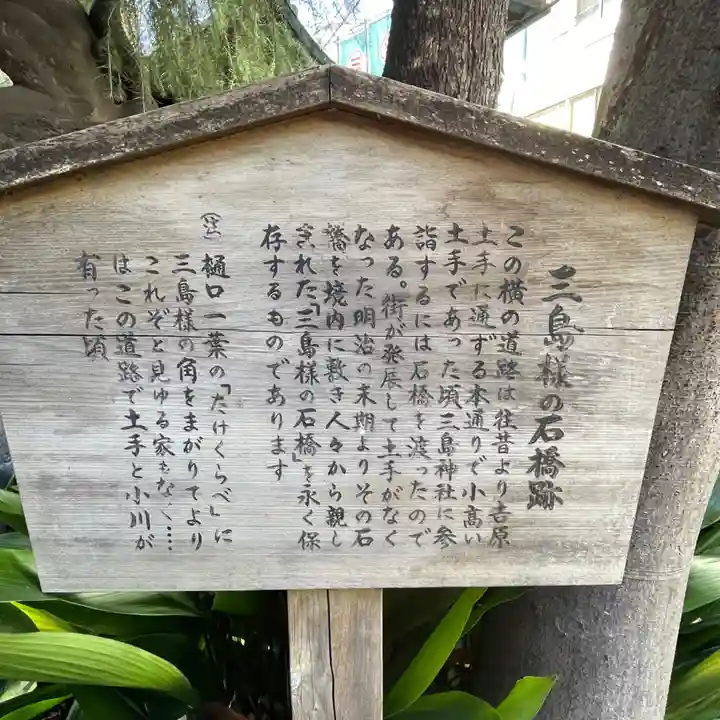 三島様の石橋跡
この横の道路は往昔より吉原
土手に通ずる本通りで小高い
土手であった頃三島神社に参
詣するには石橋を渡ったので
ある。街が発展して土手がなく
なった明治の末期よりその石
橋を境内に敷き人々から親し
まれた「三島様の石橋」を永く保
存するものであります
(註)樋口一葉の「たけくらべ」に
三島様の角をまがりてより
これぞと見ゆる家もなく‥‥
はこの道路で土手と小川が
有った頃